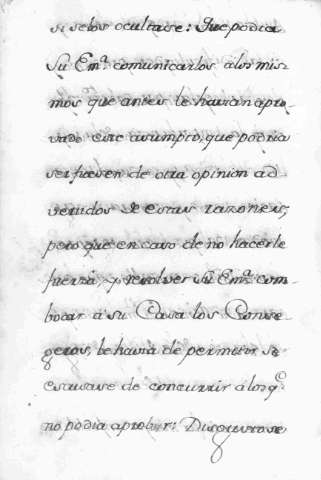 si selos ocultase: Que podia
Su Em.ª comunicarlos alos mis-
mos que antes le havian apro-
vado este asumpto, que podria
ser fuesen de otra opinion ad-
vertidos de estas razones,
pero que en caso de no hacerle
fuerza y resolver Su Em.ª com-
bocar á su Casa los Conse-
geros, le havia de permitir se
escusase de concurrir á lo q.º
no podia aprobar: Disgustose